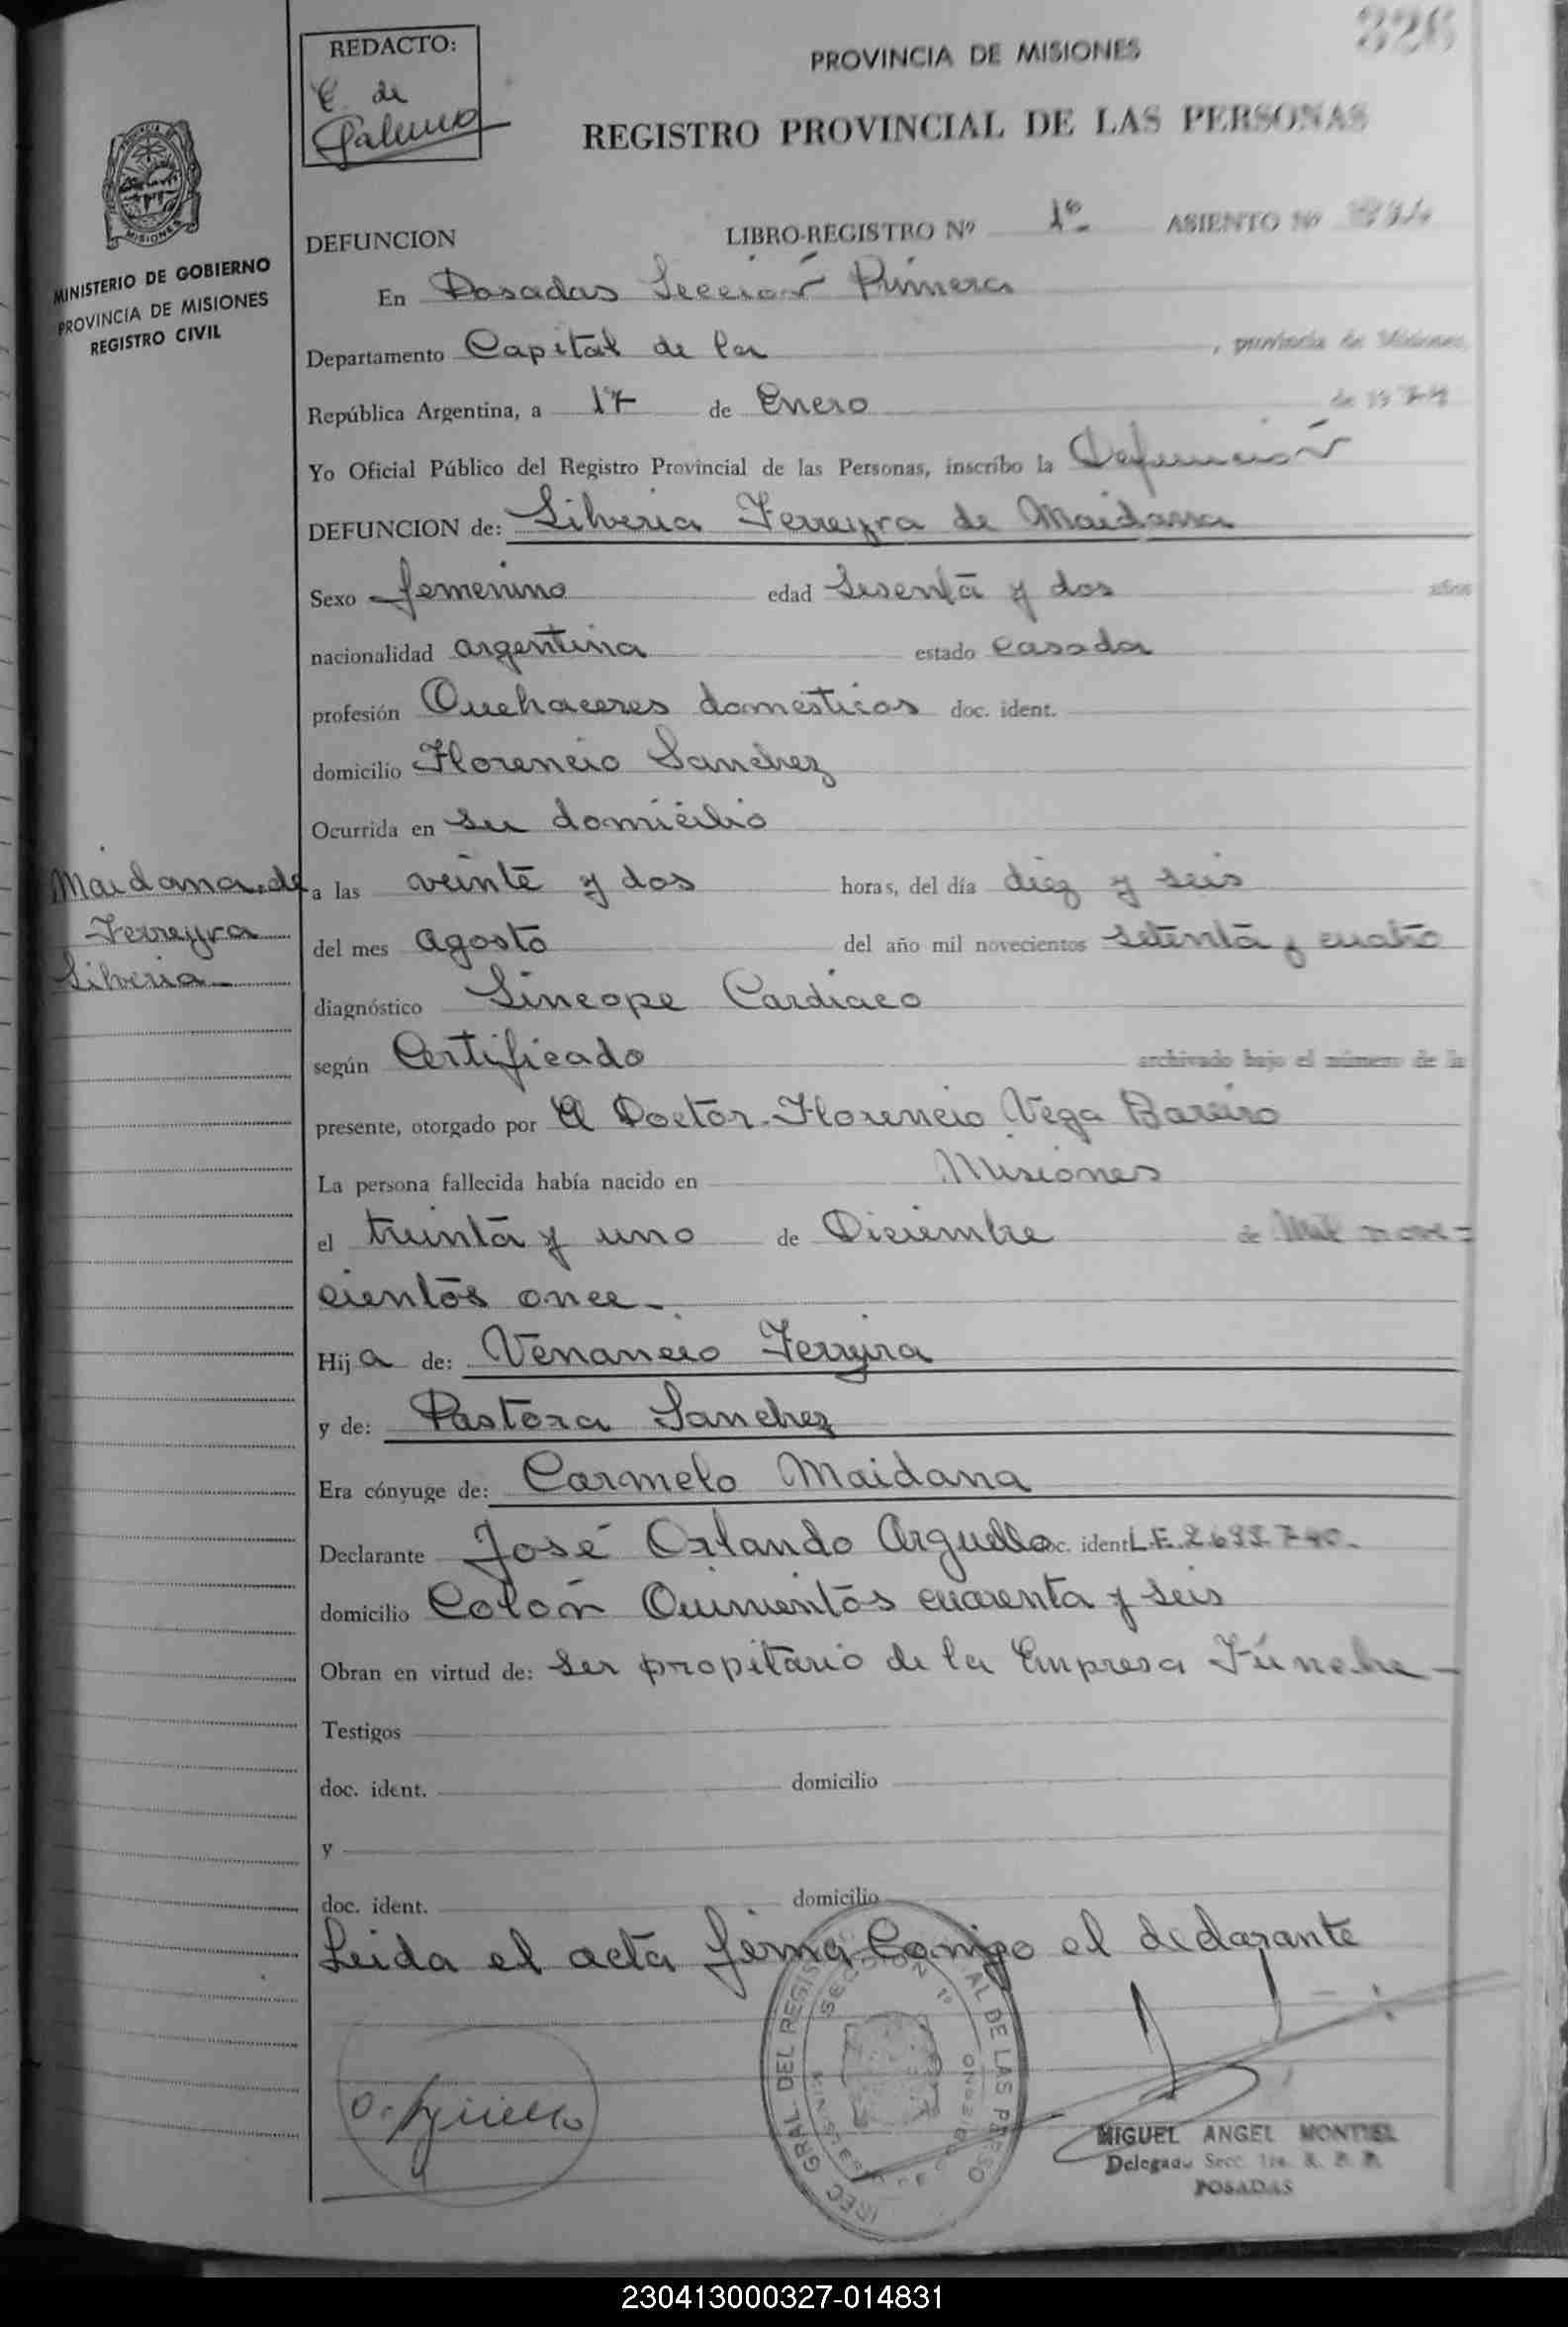 326
REDACTO:
C. de
Galeano
PROVINCIA DE MISIONES
REGISTRO PROVINCIAL DE LAS PERSONAS
MINISTERIO DE GOBIERNO
PROVINCIA DE MISIONES
REGISTRO CIVIL
DEFUNCION LIBRO-REGISTRO Nº 1º ASIENTO Nº
En Posadas Sección Primera
Departamento Capital de la , provincia de Misiones,
República Argentina, a 17 de Enero de 19
Yo Oficial Público del Registro Provincial de las Personas, inscribo la Defunción
DEFUNCION de: Silveria Ferreyra de Maidana
Sexo femenino edad Sesenta y dos años
nacionalidad argentina estado casada
profesión Quehaceres domésticos doc. ident.
domicilio Florencio Sanchez
Ocurrida en su domicilio
a las veinte y dos horas, del día diez y seis
Maidana de
Ferreyra
Silveria
del mes agosto del año mil novecientos setenta y cuatro
diagnóstico Sincope Cardiaco
según Certificado archivado bajo el número de la
presente, otorgado por El Doctor Florencio Vega Bareiro
La persona fallecida había nacido en Misiones
el treinta y uno de Diciembre de Mil nove=
cientos once.
Hija de: Venancio Ferryira
y de: Pastora Sanchez
Era cónyuge de: Carmelo Maidana
Declarante José Orlando Arguello doc. ident. L.E.
domicilio Colón Quinientos cuarenta y seis
Obran en virtud de: Ser propitario de la Empresa Fúnebre
Testigos
doc. ident. domicilio
y
doc. ident. domicilio
Leida el acta firma Comigo el declarante
O. Arguello
MIGUEL ANGEL MONTIEL
Delegado Secc. 1ra. R. P. P.
POSADAS
230413000327-014831